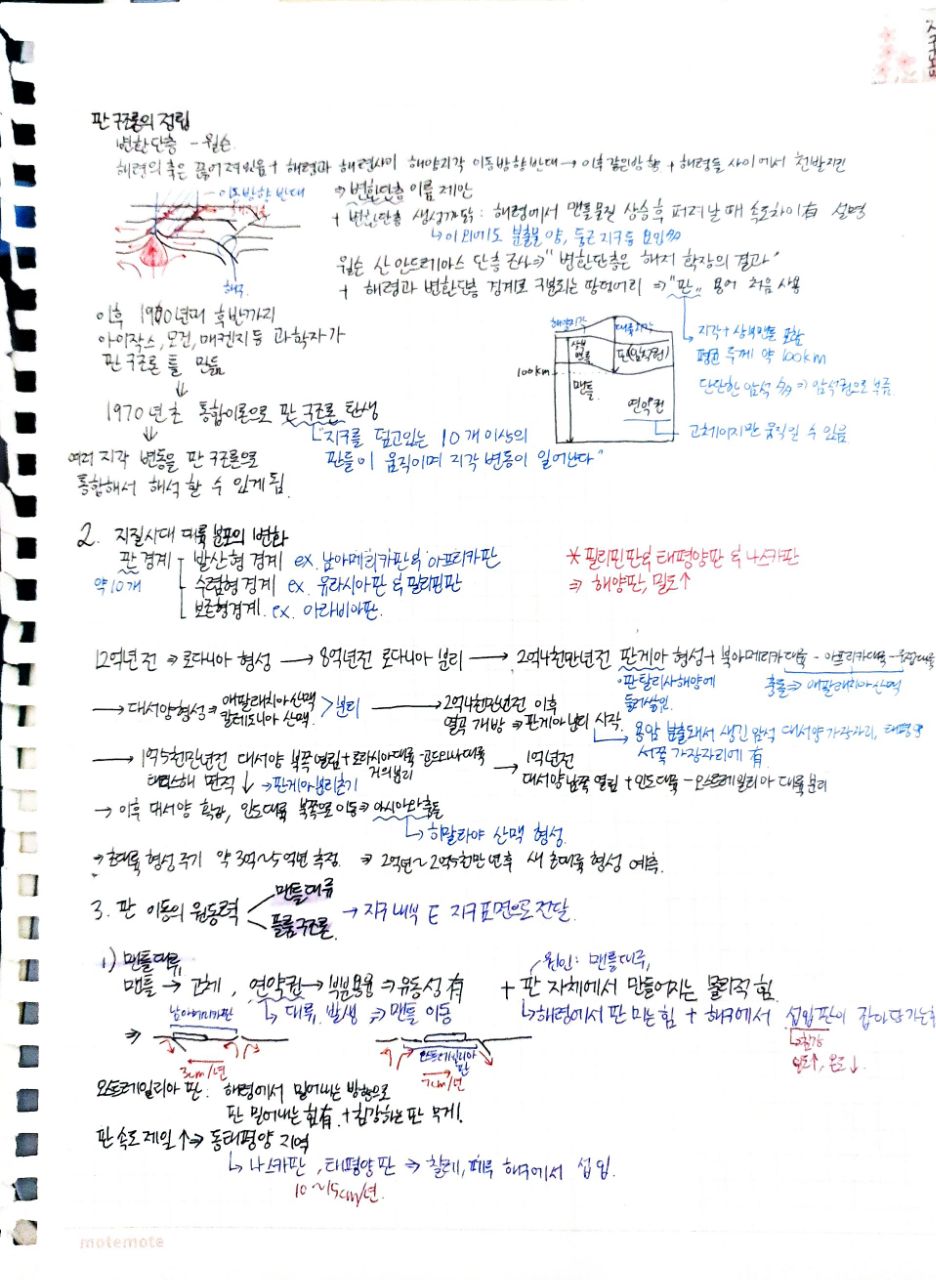 판 구조론의 정립
변환단층 - 윌슨
해령의 축은 끊어져있음 + 해령과 해령사이 해양지각 이동방향 반대 → 이후 같은방향 + 해령들 사이에서 천발지진
이동방향 반대
⇒ 변환단층 이름 제안
+ 변환단층 생성까닭 : 해령에서 맨틀물질 상승 후 퍼져날 때 속도차이有 설명
↳ 이외에도 분출물 양, 둥근 지구 등 요인
해구
윌슨 산 안드레아스 단층 조사 ⇒ "변환단층은 해저 확장의 결과"
+ 해령과 변환단층 경계로 구분되는 땅덩어리 ⇒ "판" 용어 처음 사용
이후 1960년대 후반까지
아이작스, 모건, 매켄지 등 과학자가
판 구조론 틀 만듦
↓
1970년초 통합이론으로 판 구조론 탄생
"지구를 덮고있는 10개 이상의
판들이 움직이며 지각 변동이 일어난다"
↓
여러 지각 변동을 판 구조론으로
통합해서 해석할 수 있게됨.
해양지각
대륙지각
상부
맨틀
판(암석권)
100km
맨틀
연약권
지각+상부맨틀 포함
평균 두께 약 100km
단단한 암석 ⇒ 암석권으로 부름
고체이지만 움직일 수 있음
2. 지질시대 대륙 분포의 변화
판 경계 - 발산형 경계 ex. 남아메리카판 & 아프리카판
약 10개
수렴형 경계 ex. 유라시아판 & 필리핀판
보존형경계. ex. 아라비아판.
* 필리핀판 & 태평양판 & 나스카판
⇒ 해양판, 밀도↑
12억년 전 ⇒ 로디니아 형성 → 8억년전 로디니아 분리 → 2억4천만년전 판게아 형성 + 북아메리카대륙 - 아프리카대륙 - 유럽대륙
·판탈라사해양에
둘러싸임.
충돌 ⇒ 애팔래치아 산맥
→ 대서양형성 ⇒ 애팔래치아 산맥
칼레도니아 산맥 > 분리
→ 2억4천만년전 이후
열곡 개방 ⇒ 판게아 분리 시작.
↳ 용암 분출돼서 생긴 암석 대서양 가장자리, 태평양
서쪽 가장자리에 有
→ 1억 5천만년전 대서양 북쪽 열림 + 로라시아대륙 곤드와나대륙
거의분리
테티스해 면적 ↓ → 판게아분리초기
→ 1억년전
대서양 남쪽 열림 + 인도대륙 - 오스트레일리아 대륙 분리
→ 이후 대서양 확장, 인도대륙 북쪽으로 이동 ⇒ 아시아와 충돌
↳ 히말라야 산맥 형성.
⇒ 초대륙 형성 주기 약 3억~5억년 추정. ⇒ 2억년~2억5천만 년후 새 초대륙 형성 예측.
3. 판 이동의 원동력
맨틀대류
플룸구조론
→ 지구 내부 E 지구 표면으로 전달.
1) 맨틀대류
맨틀 → 고체, 연약권 → 부분용융 ⇒ 유동성 有
↳ 대류 발생 ⇒ 맨틀 이동
원인: 맨틀대류,
+ 판 자체에서 만들어지는 물리적 힘.
↳ 해령에서 판 미는 힘 + 해구에서 섭입판이 잡아당기는힘
↳ 침강
밀도↑, 온도↓
⇒ 남아메리카판
3cm/년
오스트레일리아
판
7cm/년
오스트레일리아 판 : 해령에서 밀어내는 방향으로
판 밀어내는 힘有. + 침강하는 판 무게!
판 속도 제일↑ ⇒ 동태평양 지역
↳ 나스카판, 태평양판 ⇒ 칠레, 페루 해구에서 섭입.
10~15cm/년.
motemote